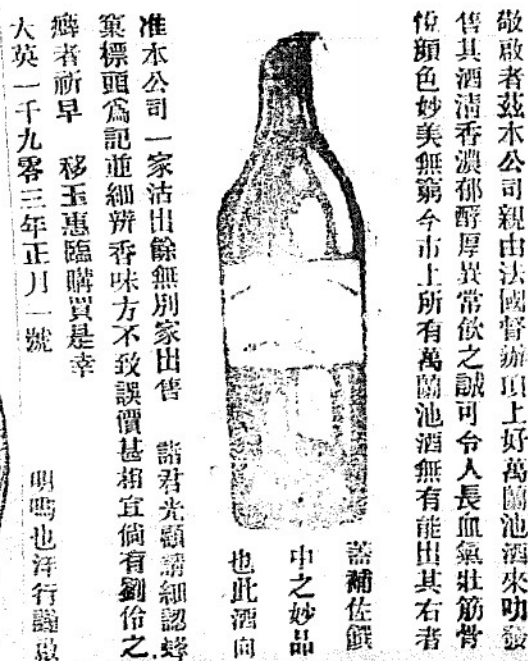 敬啟者茲本公司親由法國督辦頂上好萬蘭池酒來叻發
售其酒淸香濃郁酹厚異常飲之誠可令人長血氣壯筋骨
悅顏色妙美無窮今市上所有萬蘭池酒無有能出其右者
蓋補佐饌
中之妙品
也此酒向
准本公司一家沽出餘無別家出售 諸君光顧請細認
棄標頭爲記並細辨香味方不致誤價甚相宜倘有劉伶之
癖者祈早 移玉惠臨購買是幸
大英一千九零三年正月一號 明嗎也洋行謹啟